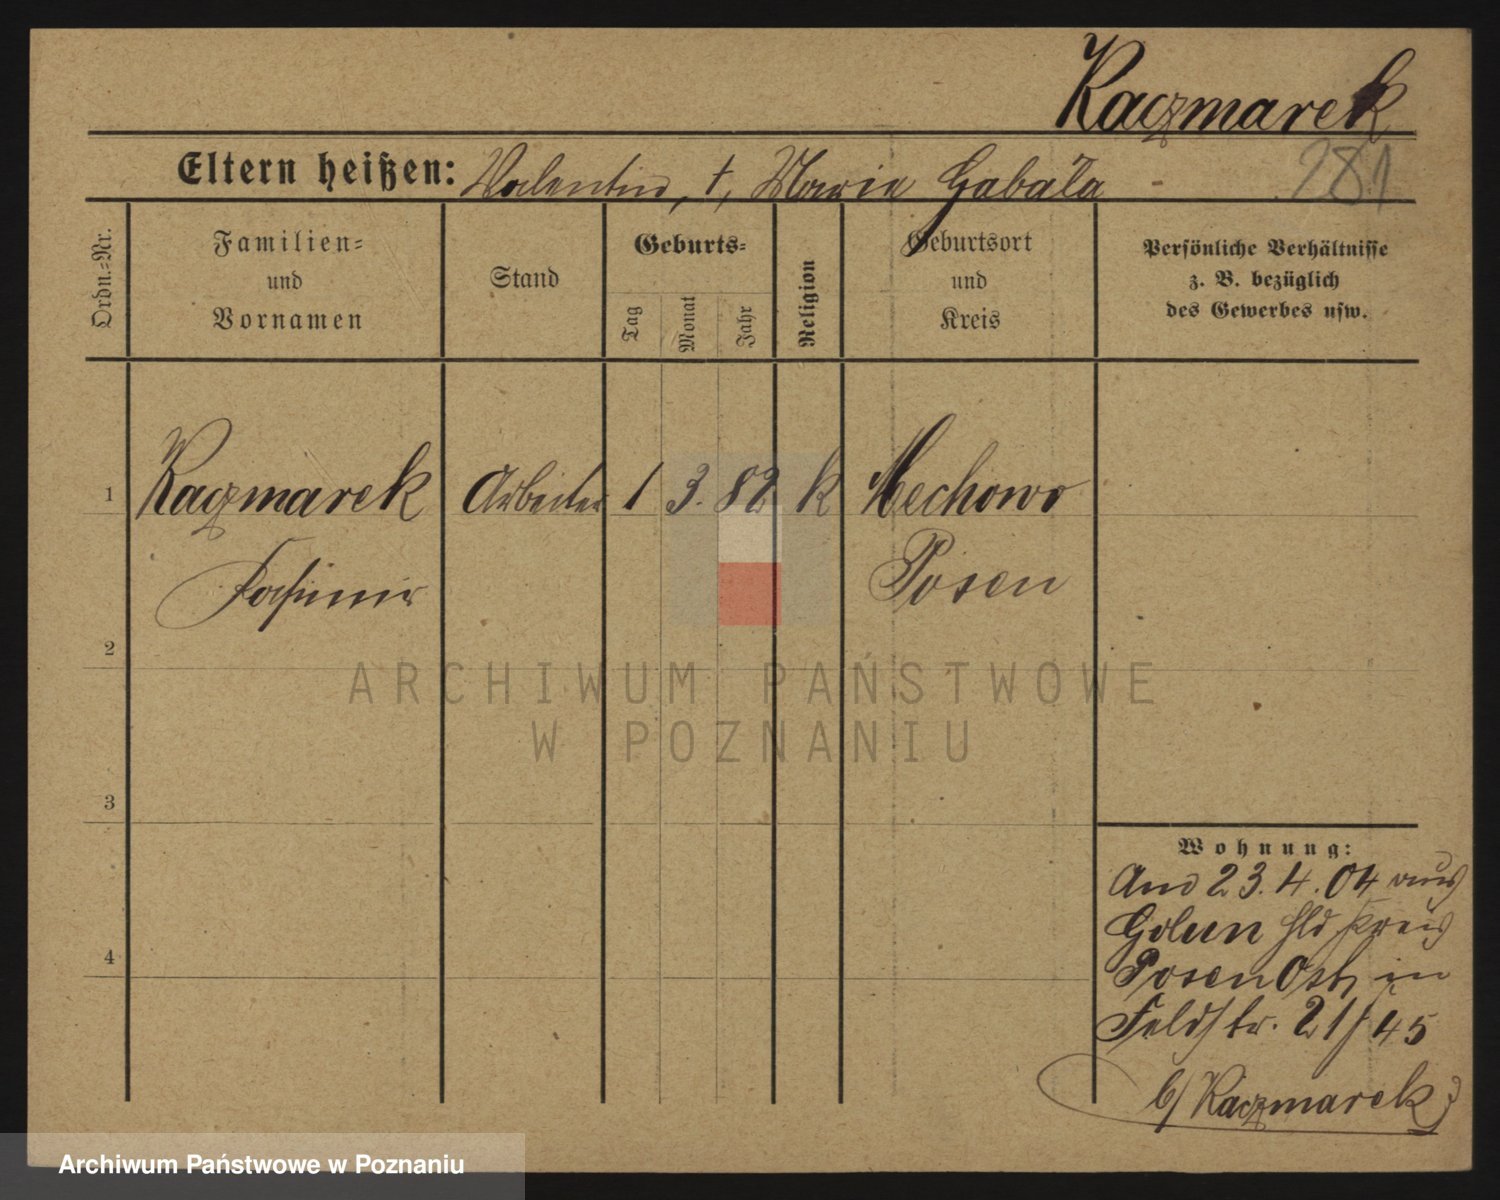 Kaczmarek
Eltern heißen: Valentin, †, Maria Gabała -
281
Ordn.-Nr.
Familien-
und
Vornamen
Stand
Geburts-
Tag
Monat
Jahr
Religion
Geburtsort
und
Kreis
Persönliche Verhältnisse
z. B. bezüglich
des Gewerbes usw.
1 Kaczmarek Arbeiter 1 3. 82 k Mechowo
Kasimir Posen
2
3
4
Wohnung:
23.4.04 aus
Golun Hld. Kreis
Posen Ost, in
Feldstr. 21/45
b/ Kaczmarek
ARCHIWUM PAŃSTWOWE
W POZNANIU
Archiwum Państwowe w Poznaniu